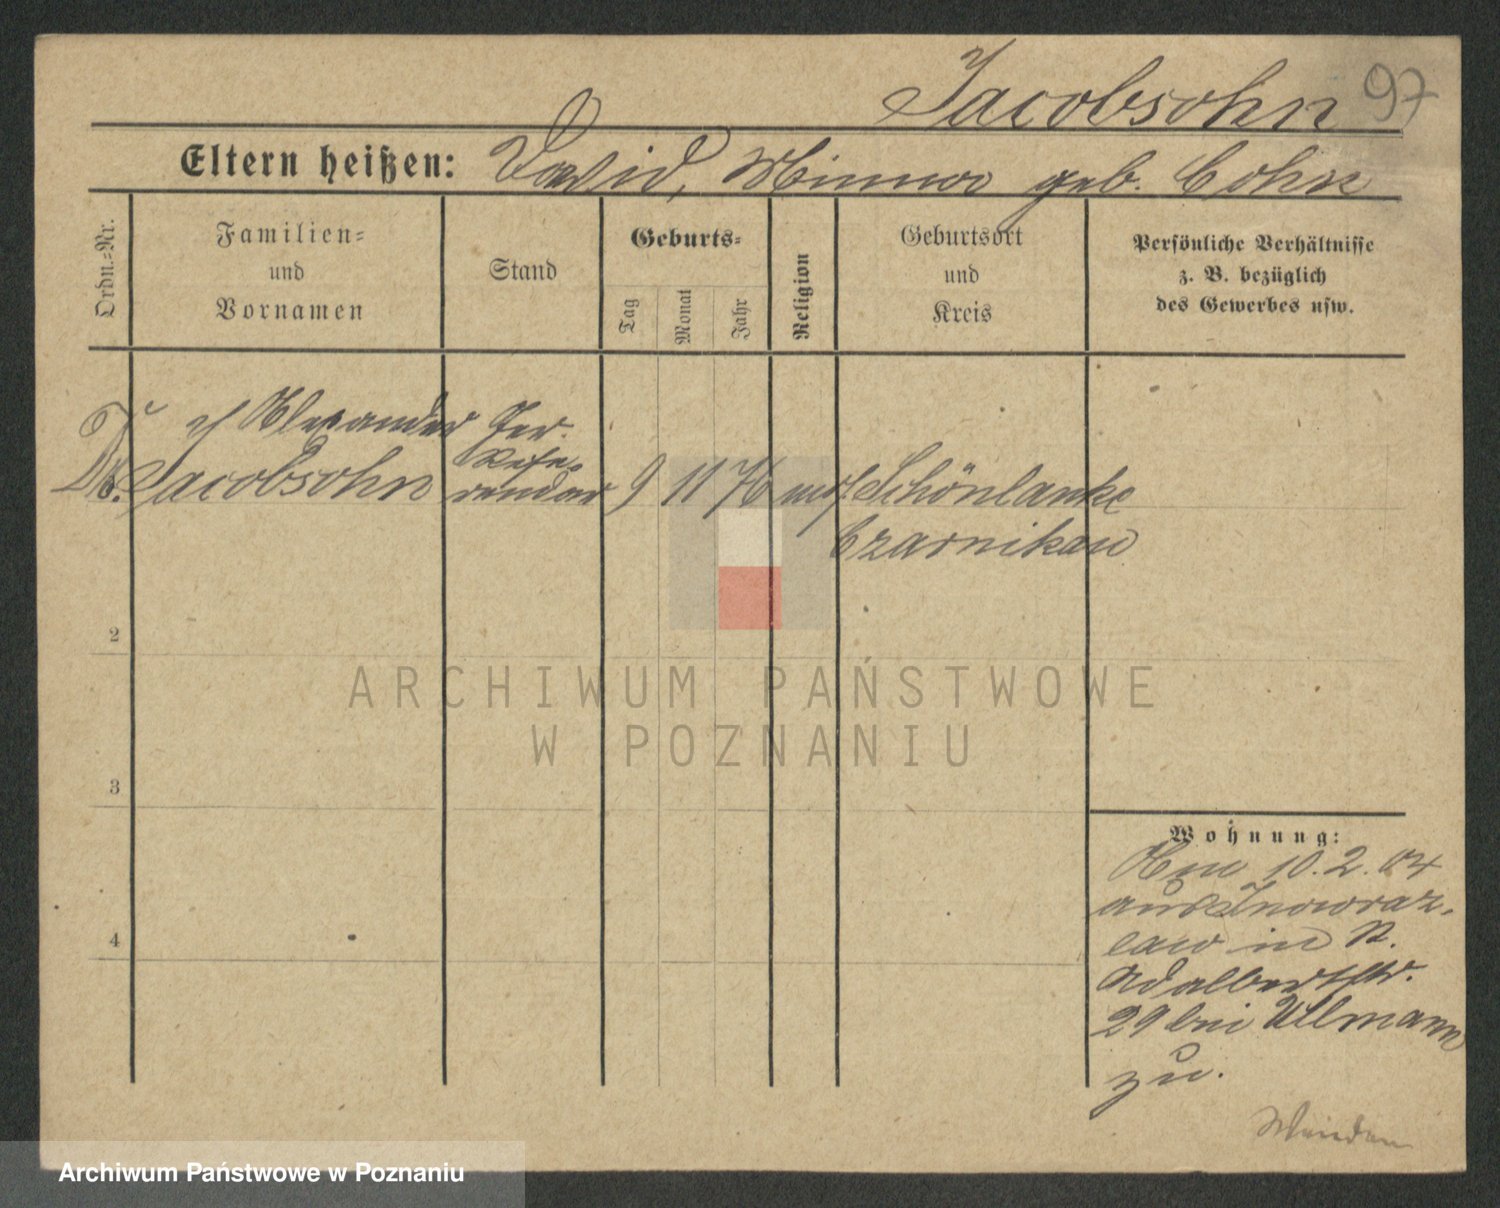 Jacobsohn 97
Eltern heißen: David, Minna geb. Cohn
Ordn.-Nr.
Familien-
und
Vornamen
Stand
Geburts-
Tag
Monat
Jahr
Religion
Geburtsort
und
Kreis
Persönliche Verhältnisse
z. B. bezüglich
des Gewerbes usw.
Alexander
Dr. Jacobsohn
Refe-
rendar
9 11 76 mos. Schönlanke
Czarnikau
2
3
4
Wohnung:
Am 10. 2. 04
aus Inowraz-
law in P.
Adalbertstr.
29 bei Ullmann
zu.
Wenden
ARCHIWUM PAŃSTWOWE
W POZNANIU
Archiwum Państwowe w Poznaniu